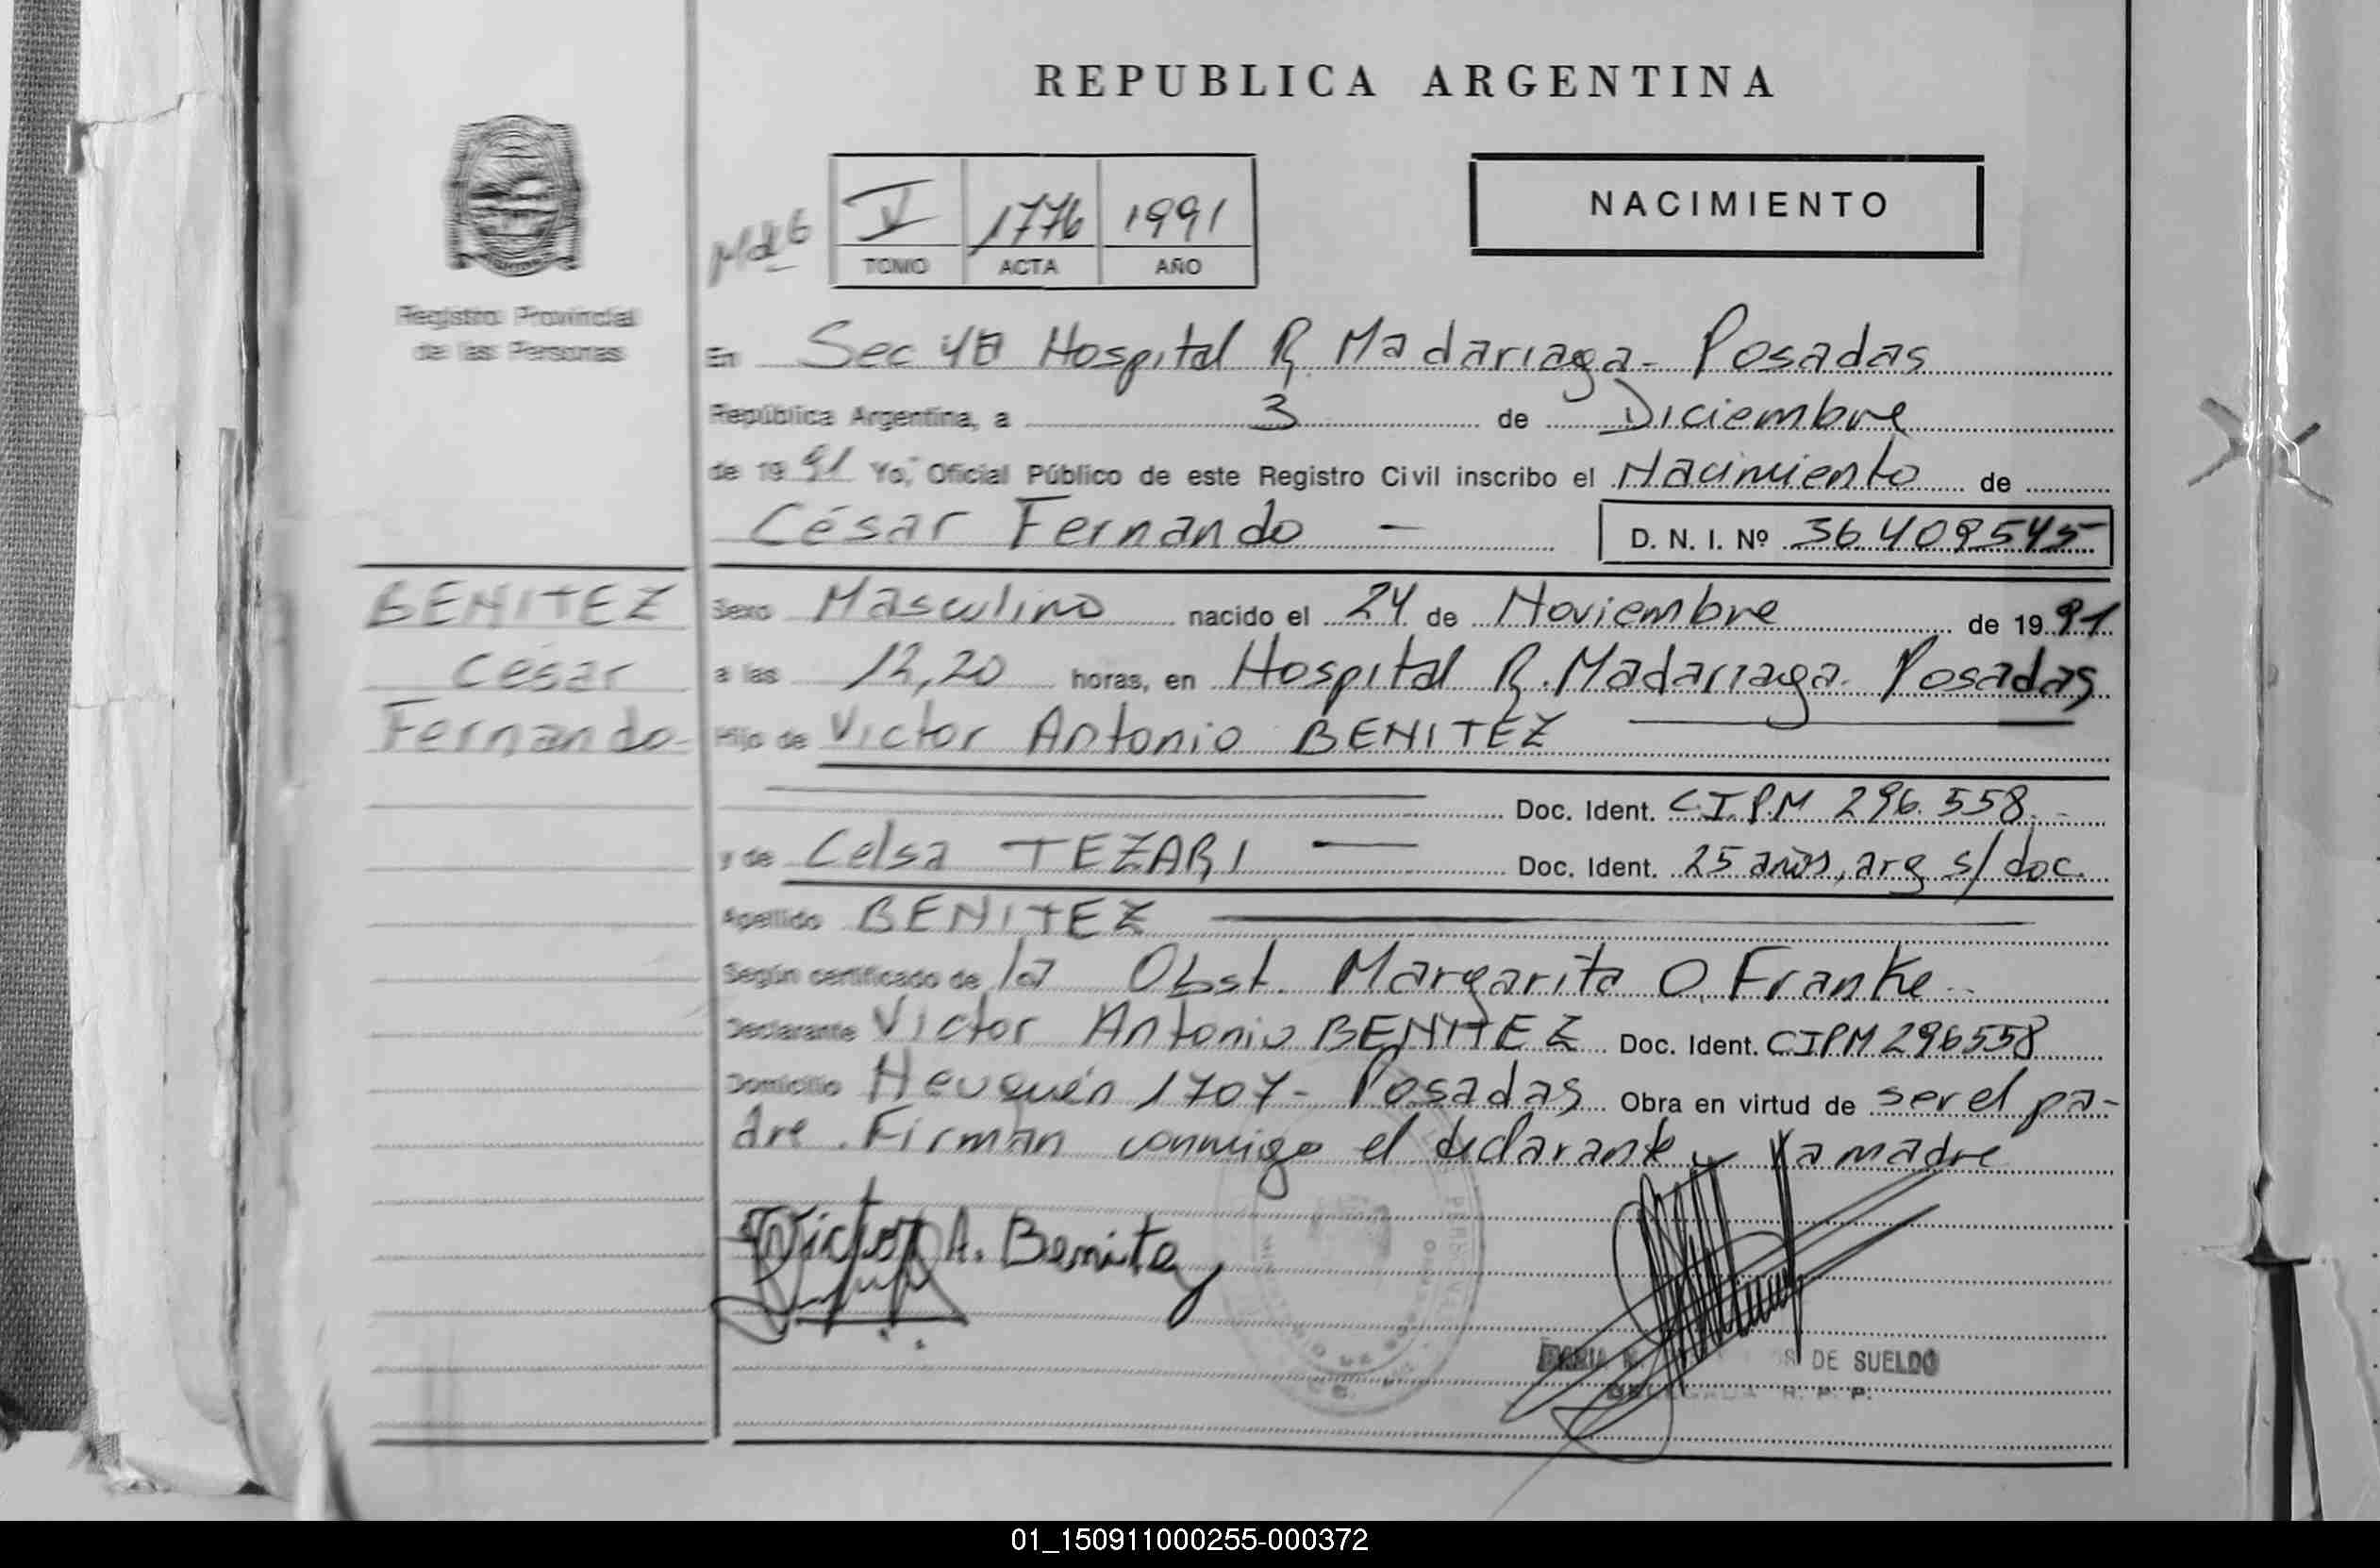 REPUBLICA ARGENTINA
NACIMIENTO
V 1776 1991
TOMO ACTA AÑO
Registro Provincial
de las Personas
En Sec 4a Hospital R. Madariaga - Posadas
República Argentina, a 3 de Diciembre
de 1991 Yo, Oficial Público de este Registro Civil inscribo el Nacimiento de
César Fernando -
D. N. I. Nº 36.409545
BENITEZ
César
Fernando-
Sexo Masculino nacido el 24 de Noviembre de 1991
a las 12,20 horas, en Hospital R. Madariaga. Posadas
Hijo de Victor Antonio BENITEZ
Doc. Ident. C.I.P.M 296.558.-
y de Celsa TEZARI — Doc. Ident. 25 años, arg s/doc.
Apellido BENITEZ
Según certificado de la Obst. Margarita O. Franke
Declarante Victor Antonio BENITEZ Doc. Ident. CIPM 296558
Domicilio Neuquén 1707 - Posadas Obra en virtud de ser el pa-
dre. Firman conmigo el declarante y la madre
Victor A. Benitez
MARIA DE SUELDO
R. P. P.
01_150911000255-000372